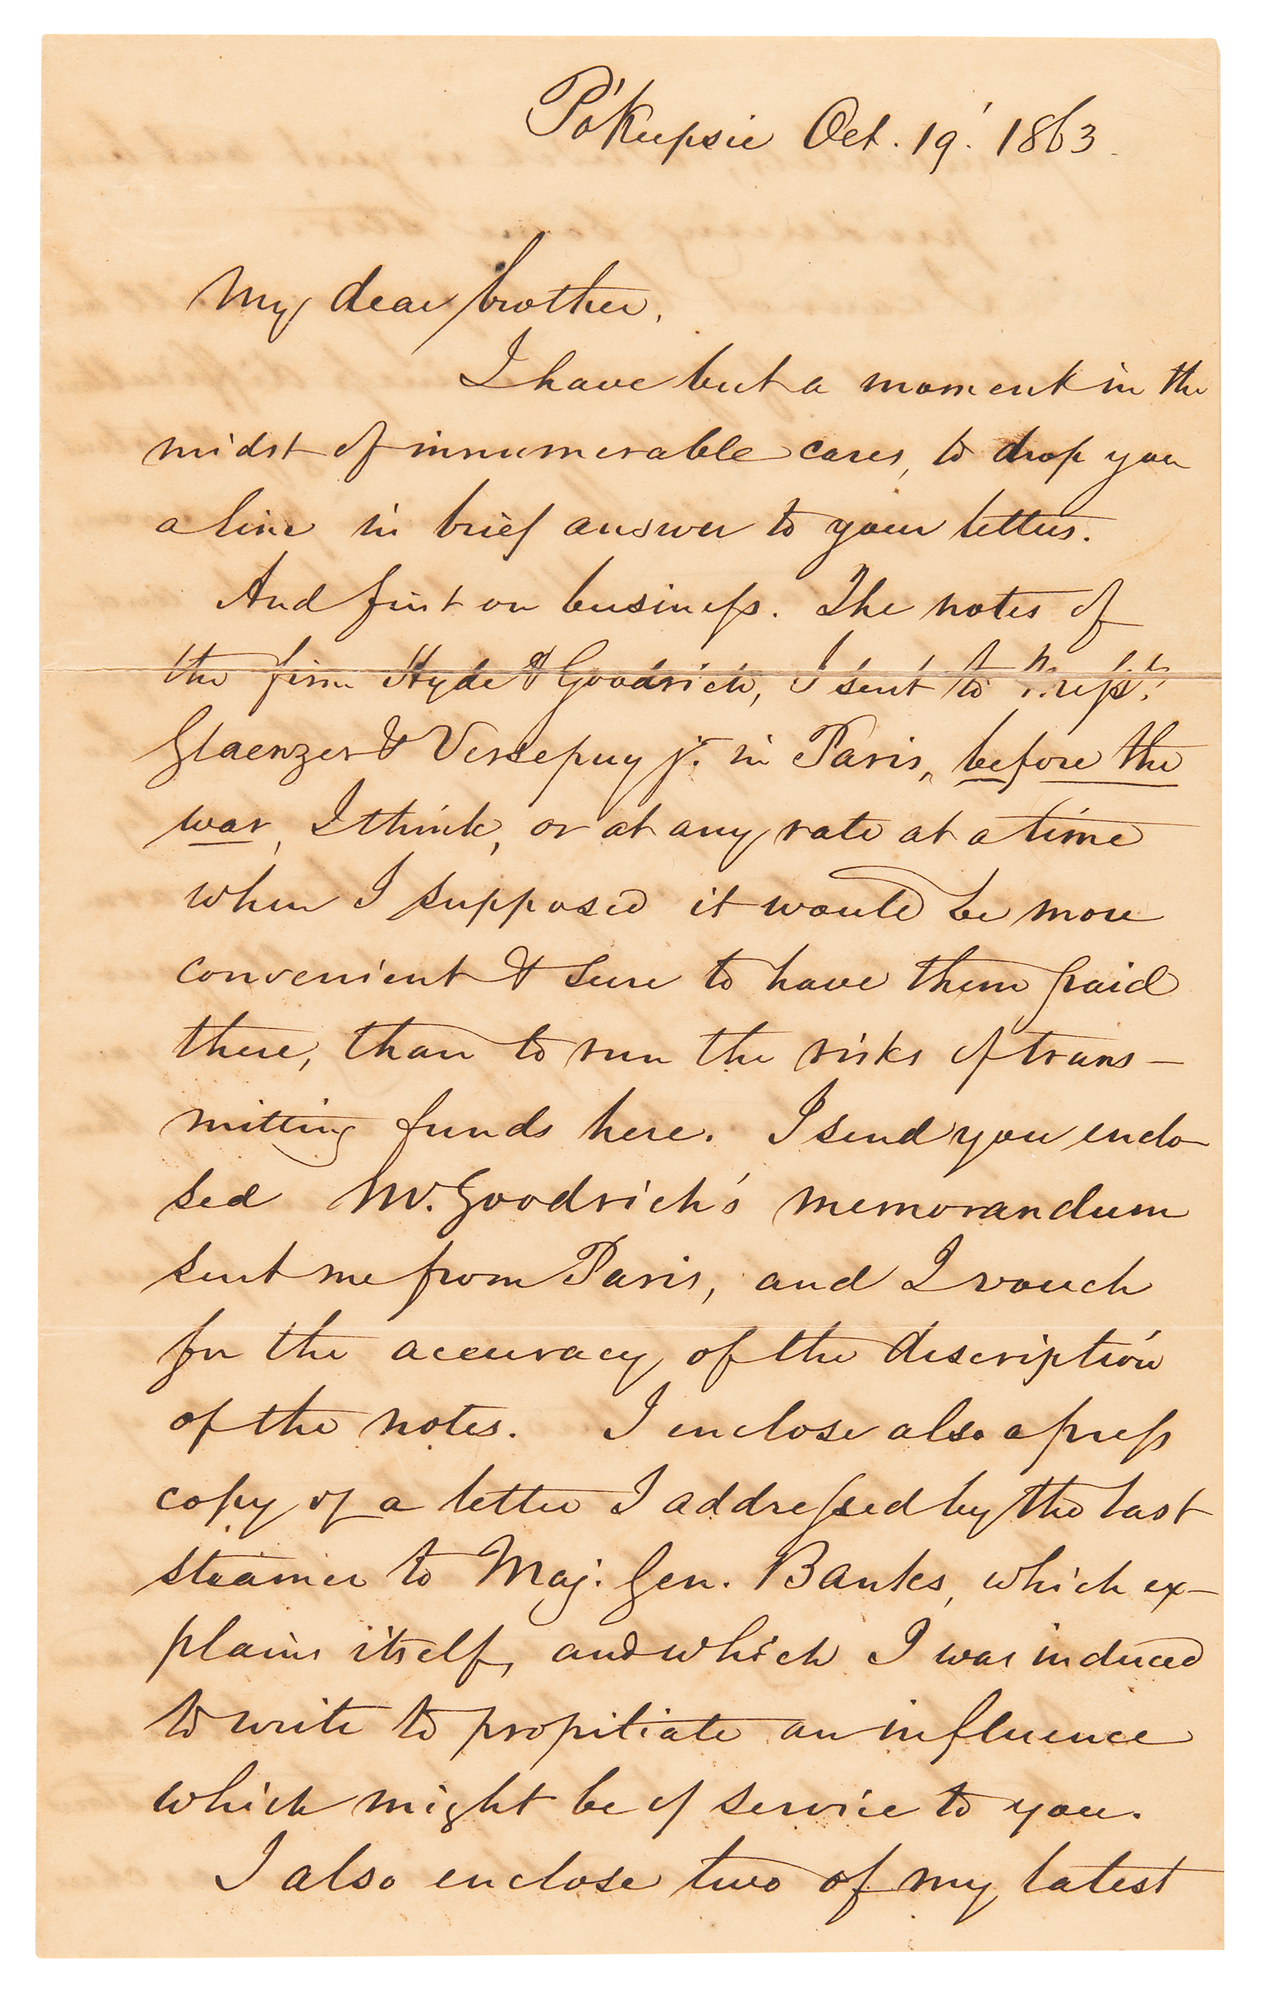 Po'Keepsie Oct. 19' 1863.
My dear brother,
I have but a moment in the
midst of innumerable cares, to drop you
a line in brief answer to your letters.
And first on business. The notes of
the firm Hyde & Goodrich, I sent to Mess.rs
Glaenzer & Versepuy jr. in Paris, before the
war, I think, or at any rate at a time
when I supposed it would be more
convenient & sure to have them paid
there, than to run the risks of trans-
mitting funds here. I send you enclo-
sed Mr. Goodrich's memorandum
sent me from Paris, and I vouch
for the accuracy of the description
of the notes. I enclose also a press
copy of a letter I addressed by the last
steamer to Maj. Gen. Banks, which ex-
plains itself, and which I was induced
to write to propitiate an influence
which might be of service to you.
I also enclose two of my latest